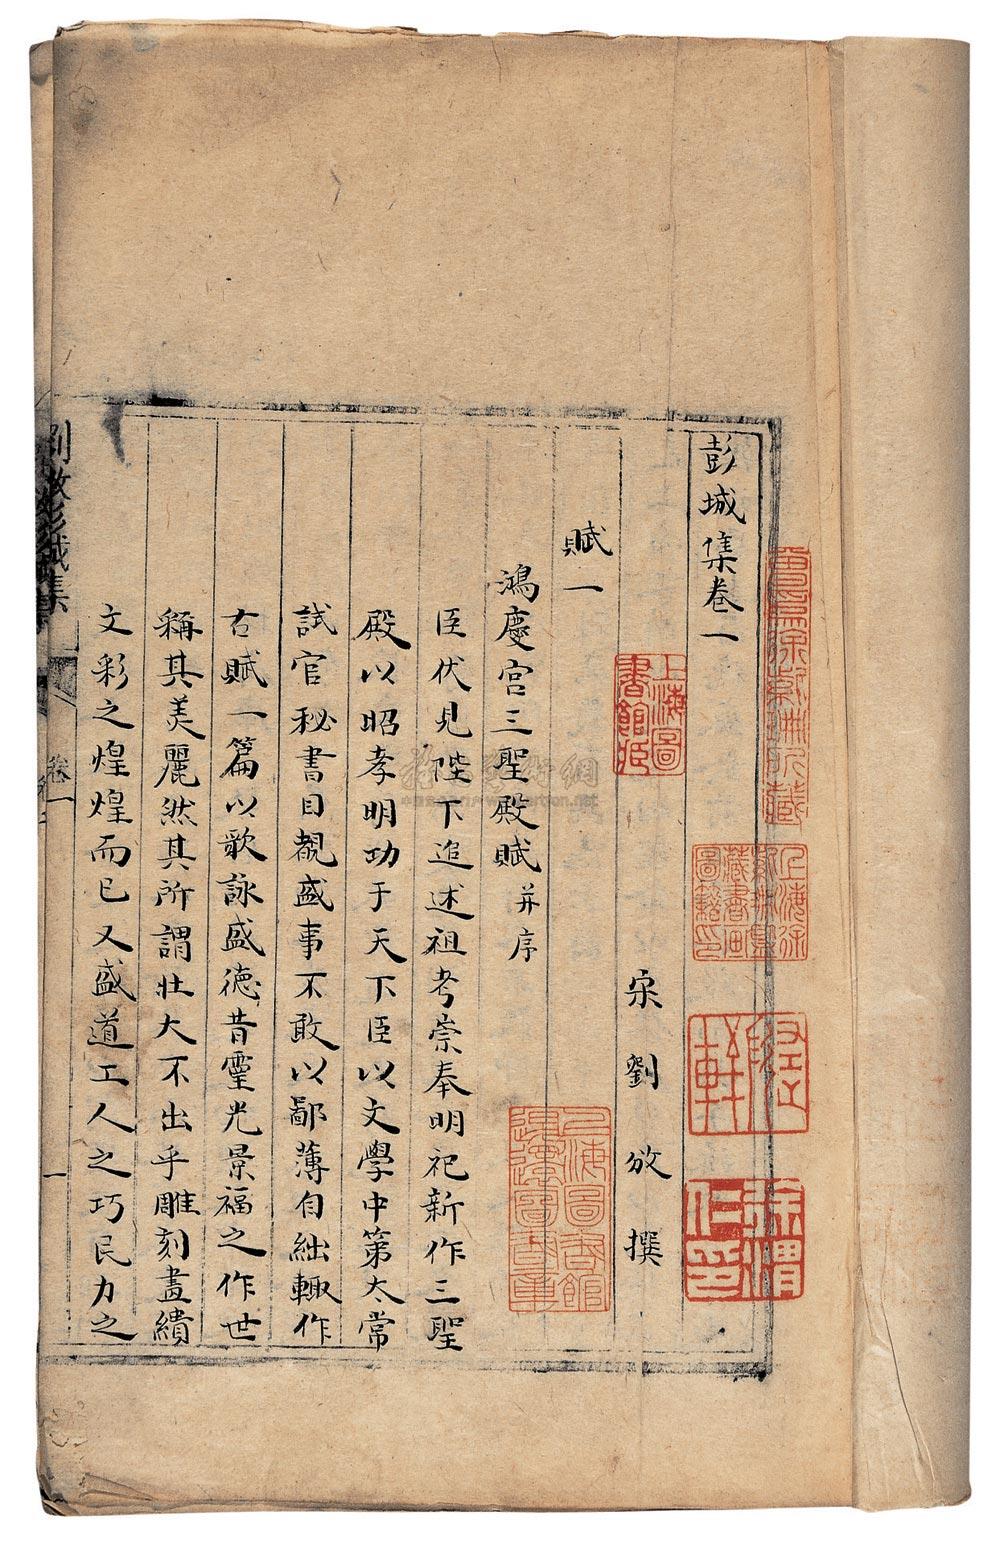 彭城集卷一
宋劉攽撰
賦一
鴻慶宮三聖殿賦并序
臣伏見陛下追述祖考崇奉明祀新作三聖
殿以昭孝明功于天下臣以文學中第太常
試官秘書目覩盛事不敢以鄙薄自絀輙作
古賦一篇以歌詠盛德昔靈光景福之作世
稱其美麗然其所謂壯大不出乎雕刻畫繢
文彩之煌煌而已又盛道工人之巧民力之
劉攽彭城集
卷一
一
上海圖書館藏
上海徐
藏書画
圖籍印
徐渭仁印
上海圖書館
退還圖書章